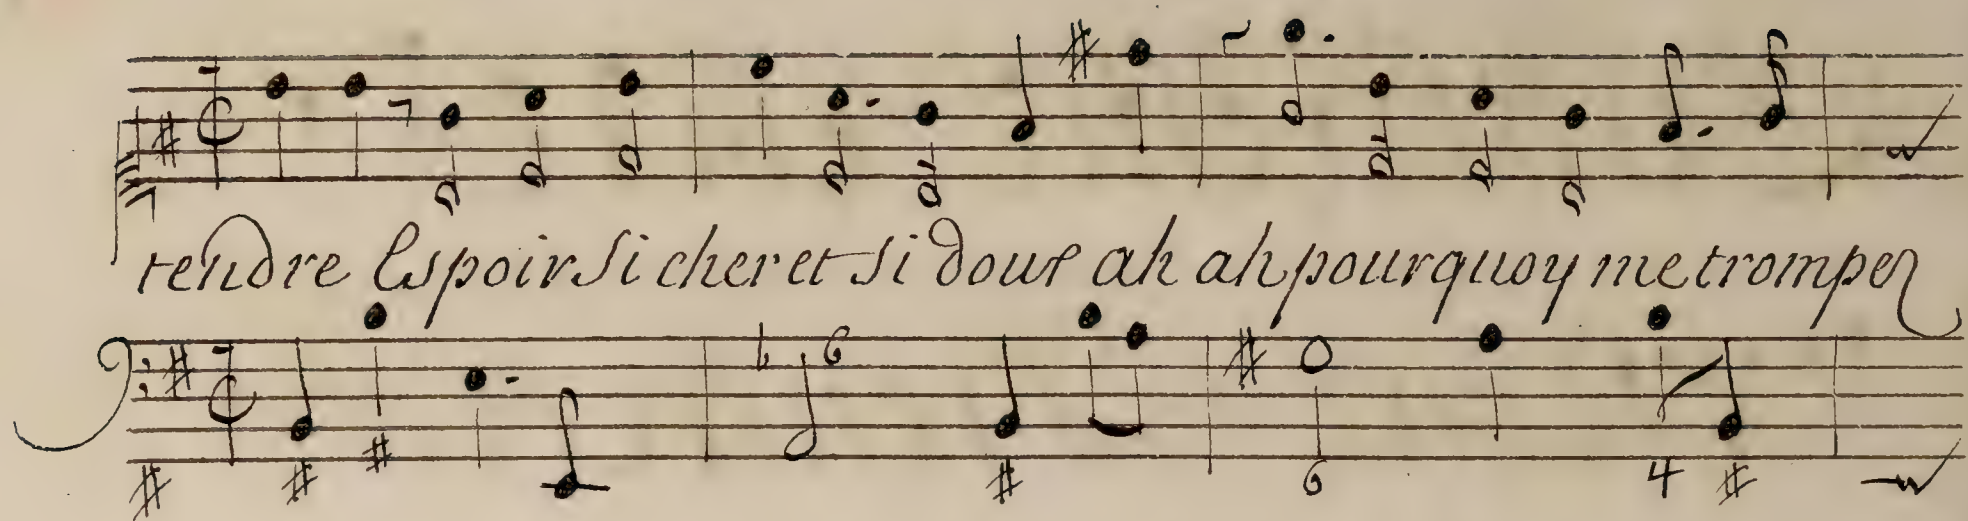 tendre Espoir si cher et si doux ah ah pourquoy me trompez
6
6 4